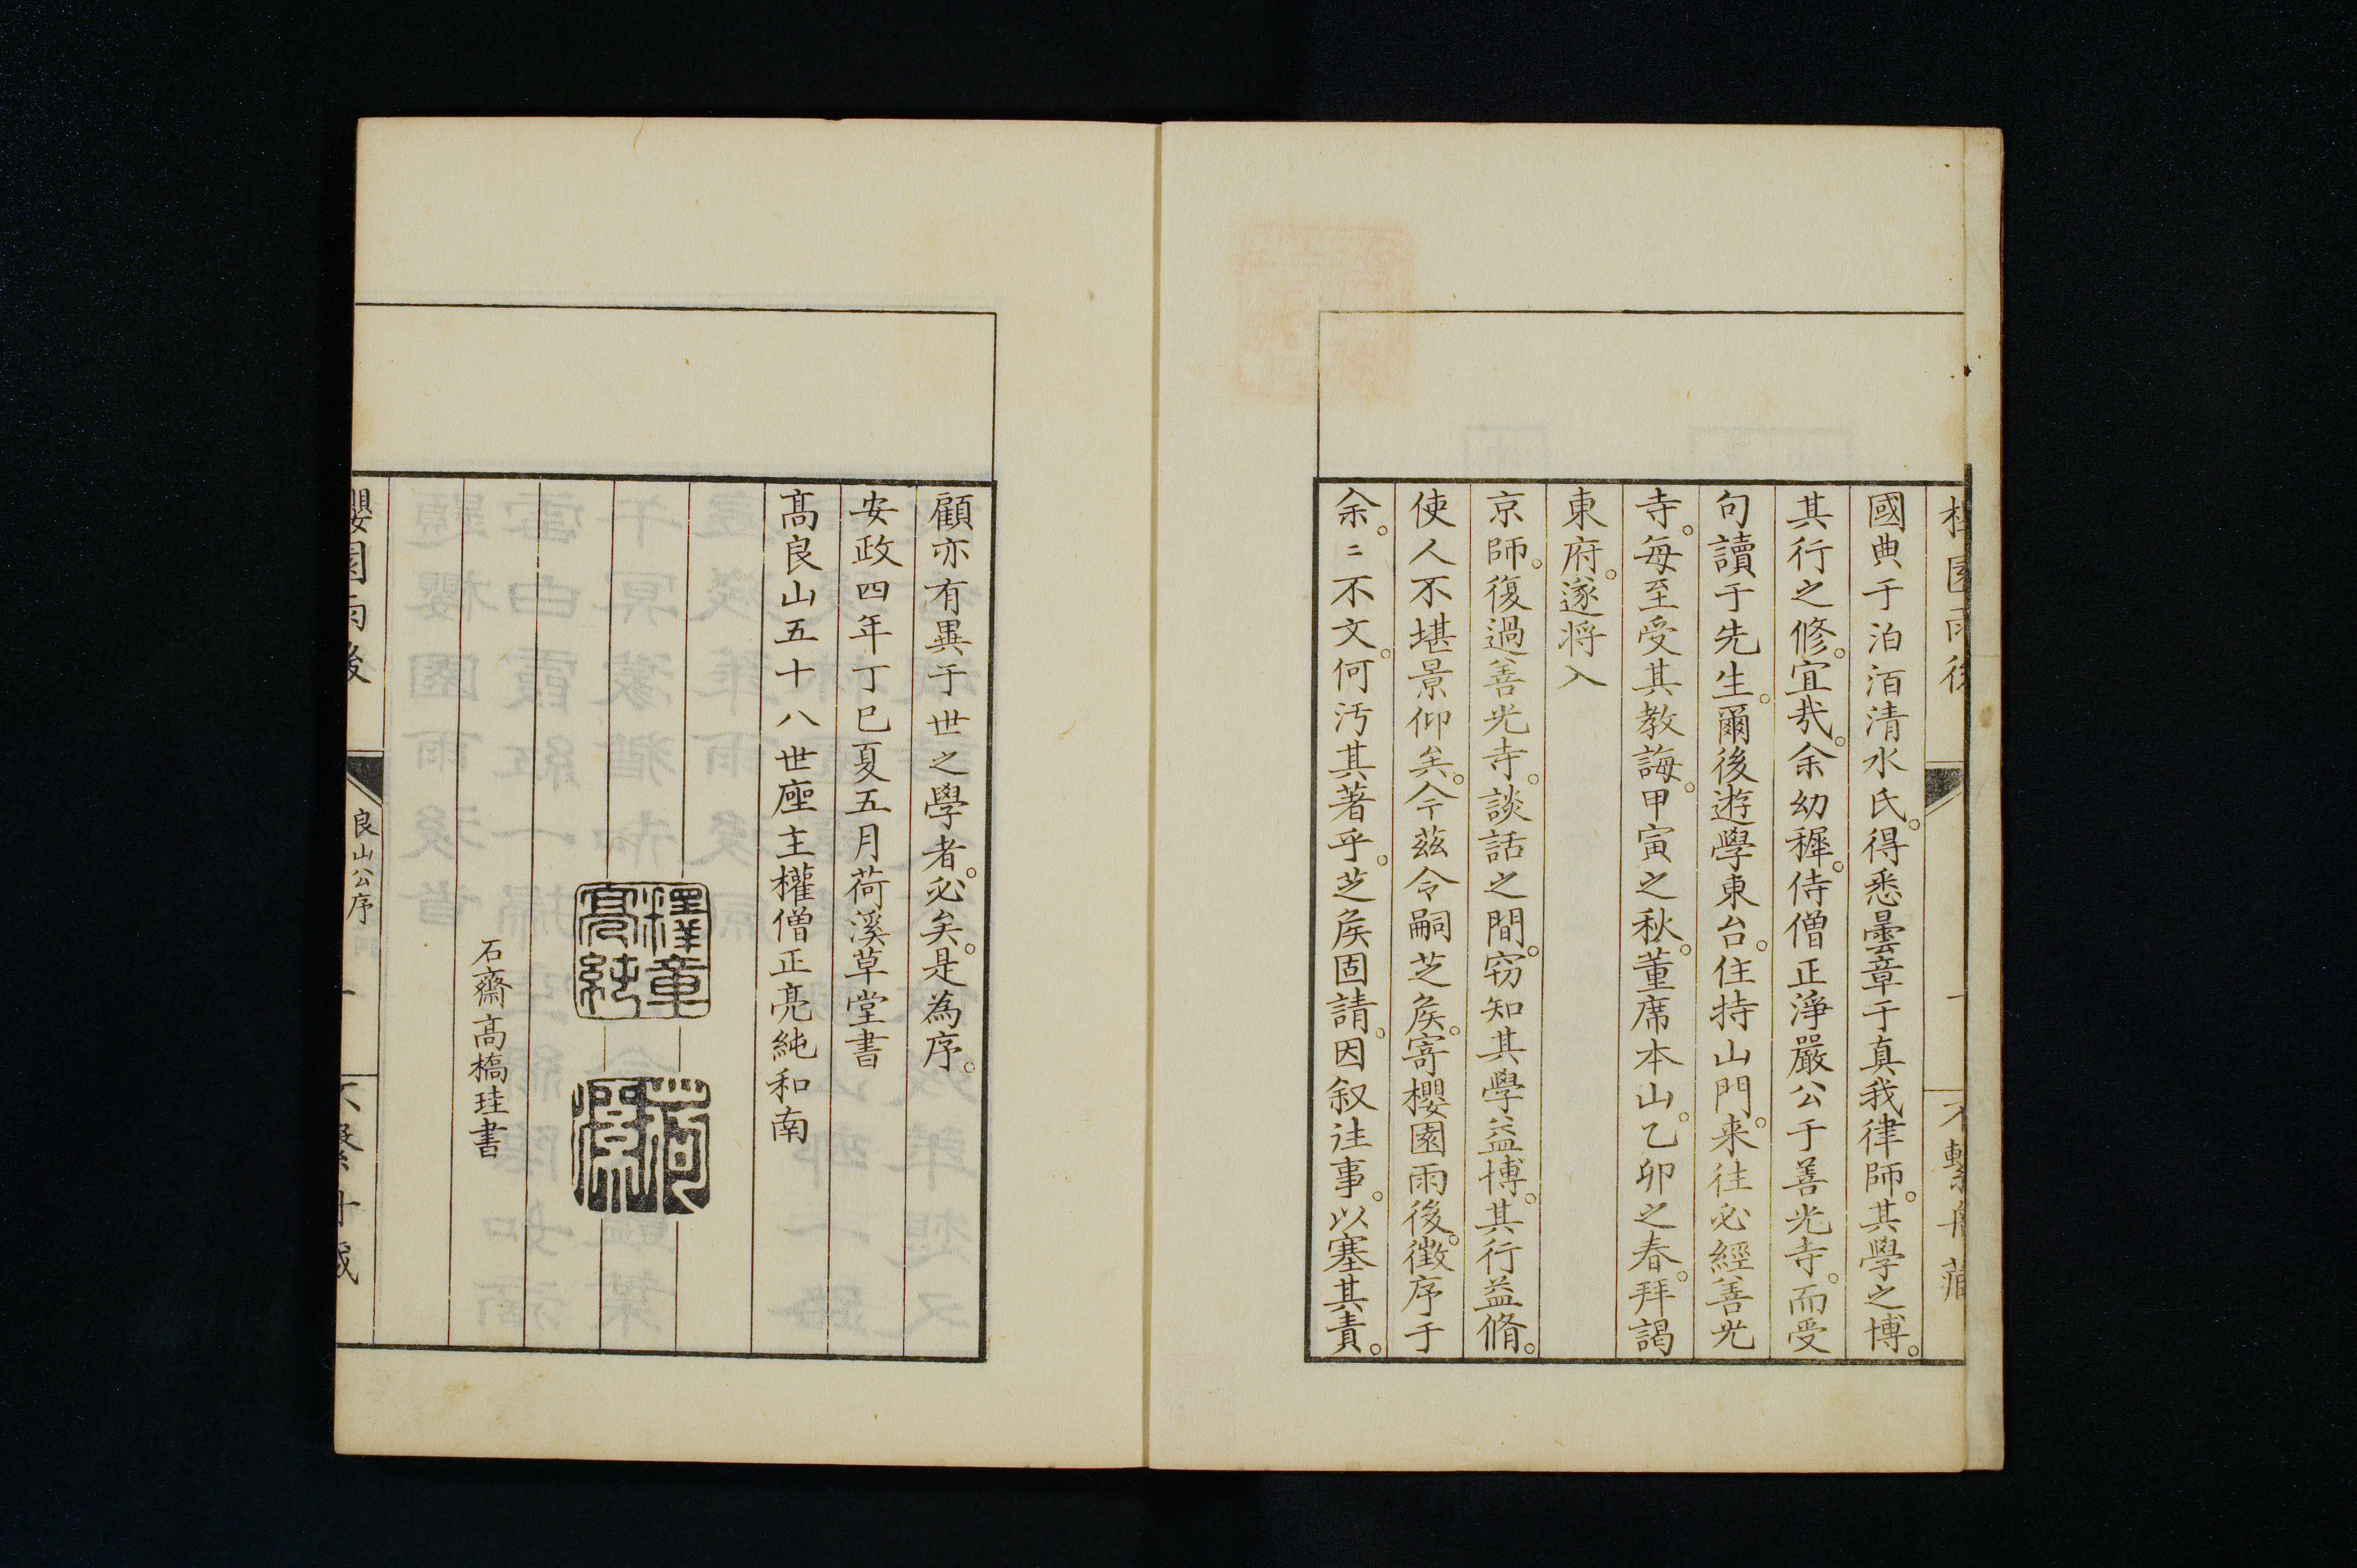 國典于泊洦清水氏。得悉曇章于真我律師。其學之博。
其行之修。宜哉。余幼穉。侍僧正淨嚴公于善光寺。而受
句讀于先生。爾後遊學東台。住持山門。来往必經善光
寺。每至受其教誨。甲寅之秋。董席本山。乙卯之春。拜謁
東府。遂将入
京師。復過善光寺。談話之間。窃知其學益博。其行益脩。
使人不堪景仰矣。今茲令嗣芝矦。寄櫻園雨後。徵序于
余。〻不文。何汚其著乎。芝矦固請。因叙往事。以塞其責。
顧亦有異于世之學者。必矣。是為序。
安政四年丁巳夏五月荷溪草堂書
髙良山五十八世座主權僧正亮純和南
釋章亮純
荷溪
石齋高橋珪書
櫻園雨後
良山公序